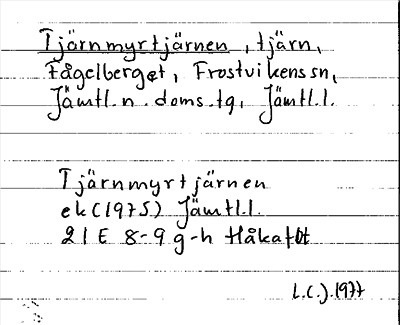 Tjärnmyrtjärnen, tjärn,
Fågelberget, Frostvikens sn,
Jämtl. n. doms.tg, Jämtl.l.
Tjärnmyrtjärnen
ek (1975) Jämtl.l.
21 E 8-9 g-h Håkafot
L.C.J. 1977